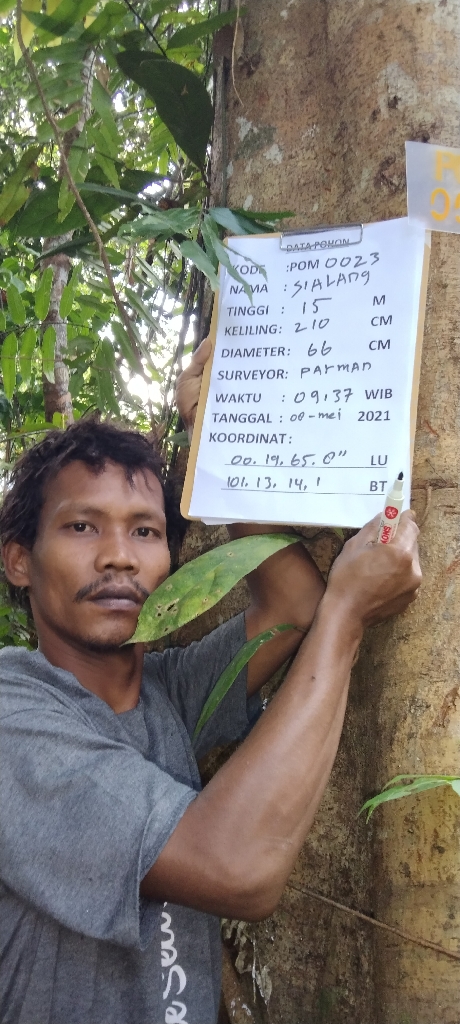 DATA POHON
KODE : POM 0023
NAMA : SIALANG
TINGGI : 15 M
KELILING: 210 CM
DIAMETER: 66 CM
SURVEYOR: PARMAN
WAKTU : 09,37 WIB
TANGGAL : 08-mei 2021
KOORDINAT:
00. 19. 65. 0" LU
101. 13. 14. 1 BT
SNOW